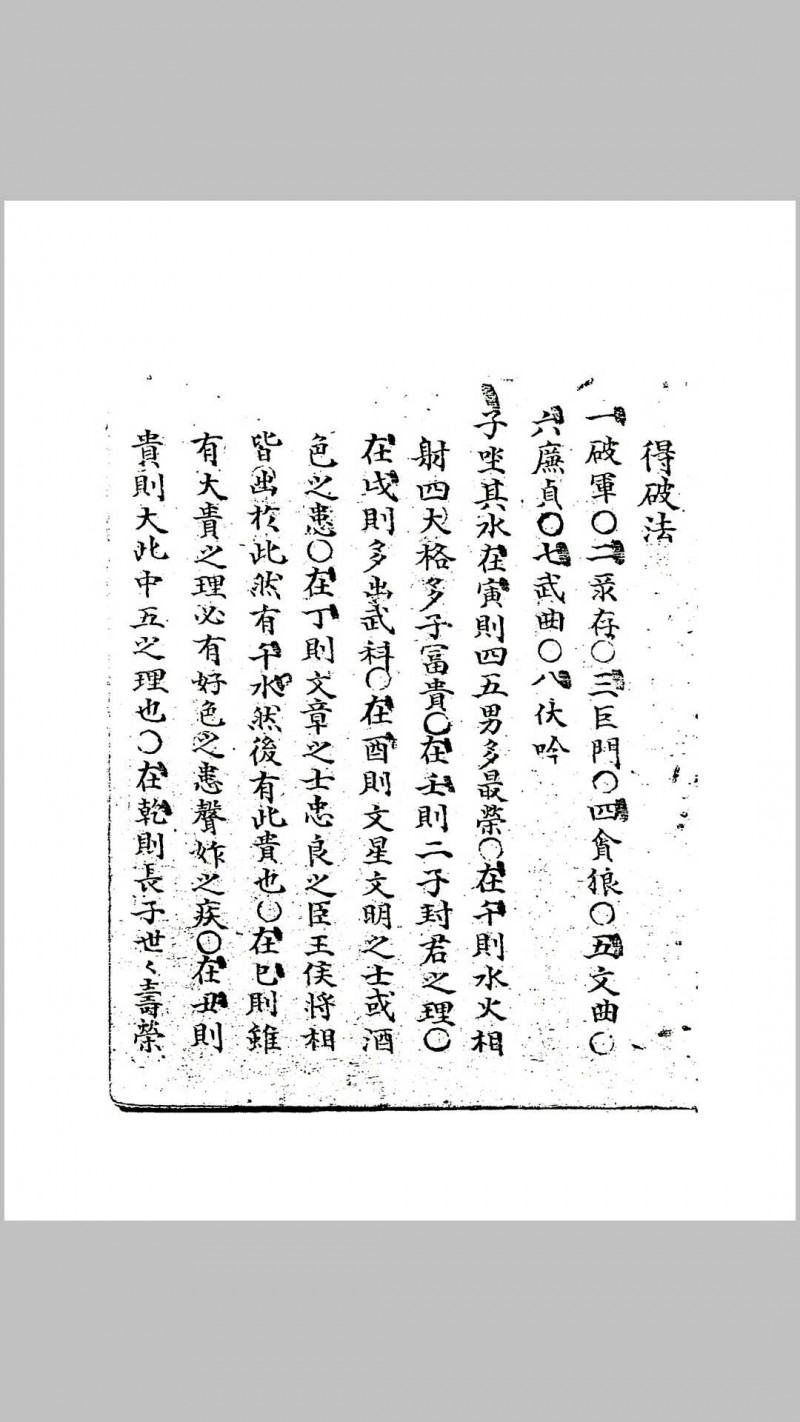 得破法
一破軍○二彔存○三巨門○四貪狼○五文曲○
六廉貞○七武曲○八伏吟
子坐其水在寅則四五男多最榮○在午則水火相
射四大格多子冨貴○在壬則二子封君之理○
在戌則多出武科○在酉則文星文明之士或酒
色之患○在丁則文章之士忠良之臣王侯將相
皆出於此然有午水然後有此貴也○在巳則雖
有大貴之理必有好色之患聲妰之疾○在丑則
貴則大此中五之理也○在乾則長子世〻壽榮